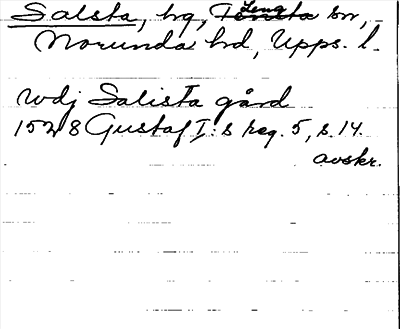 Salsta, hg, Lena sn,
Norunda hd, Upps. l.
wdj Salista gård
1528 Gustaf I:s reg. 5, s. 14.
avskr.